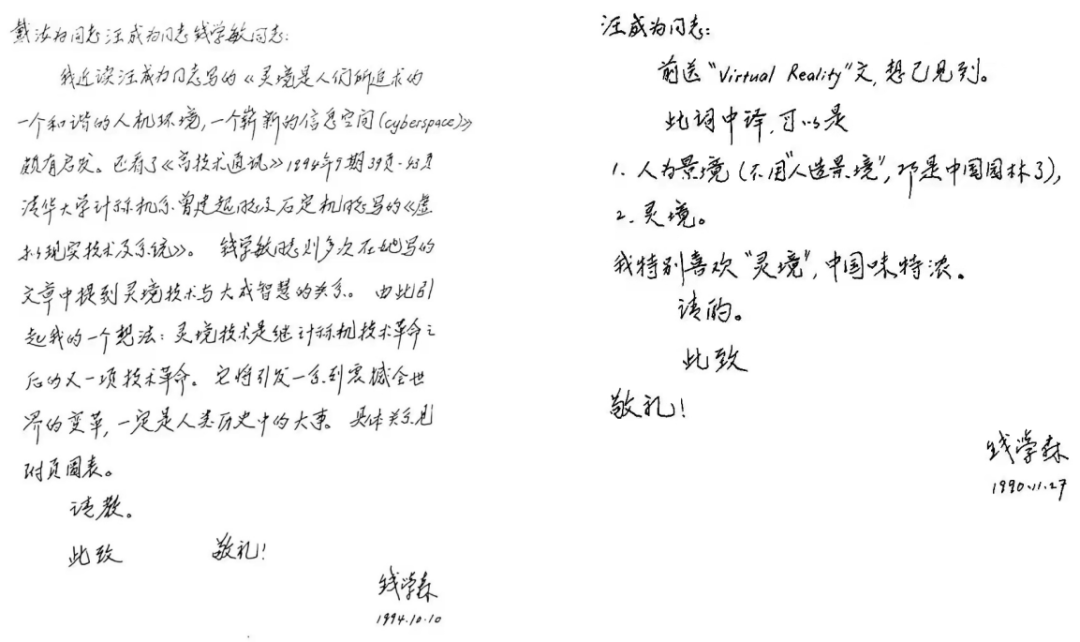 戴汝为同志汪成为同志钱学敏同志：
我近读汪成为同志写的《灵境是人们所追求的
一个和谐的人机环境，一个崭新的信息空间(cyberspace)》
颇有启发。还看了《高技术通讯》1994年9期39页-43页
清华大学计算机系曾建超同志及石定机同志写的《虚
拟现实技术及系统》。 钱学敏同志则多次在她写的
文章中提到灵境技术与大成智慧的关系。 由此引
起我的一个想法：灵境技术是继计算机技术革命之
后的又一项技术革命。它将引发一系列震撼全世
界的变革，一定是人类历史中的大事。 具体关系见
附页图表。
请教。
此致 敬礼！
钱学森
1994.10.10
汪成为同志：
前送“Virtual Reality”文，想已见到。
此词中译，可以是
1. 人为景境(不用“人造景境”，那是中国园林了)，
2. 灵境。
我特别喜欢“灵境”，中国味特浓。
请酌。
此致
敬礼！
钱学森
1990.11.27